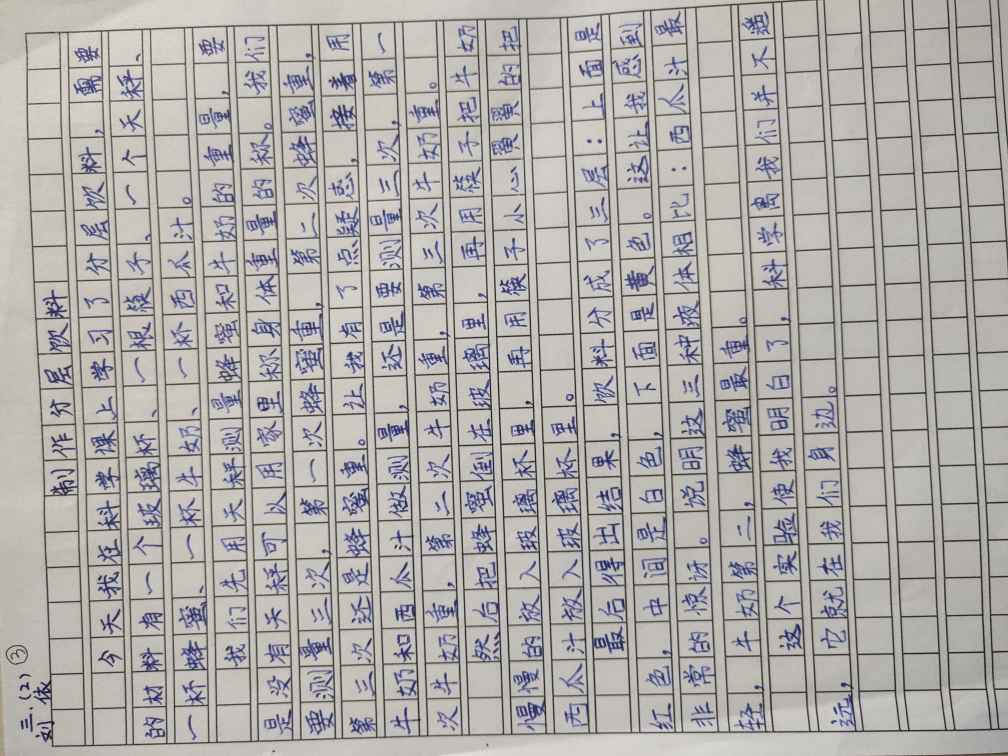 ③
三.(2)
刘依
制作分层饮料
今天我在科学课上学习了分层饮料,需要
的材料有一个玻璃杯、一根筷子、一个天秤、
一杯蜂蜜、一杯牛奶、一杯西瓜汁。
我们先用天秤测量蜂蜜和牛奶的重量,要
是没有天秤可以用家里称身体重量的称。我们
要测量三次,第一次蜂蜜重,第二次蜂蜜重,
第三次还是蜂蜜重。让我有了点疑惑,接着用
牛奶和西瓜汁做测量,还是要测量三次,第一
次牛奶重,第二次牛奶重,第三次牛奶重。
然后把蜂蜜倒在玻璃里,再用筷子把牛奶
慢慢的放入玻璃杯里,再用筷子小心翼翼的把
西瓜汁放入玻璃杯里。
最后得出结果,饮料分成了三层:上面是
红色,中间是白色,下面是黄色。这让我感到
非常的惊讶。说明这三种液体相比:西瓜汁最
轻,牛奶第二,蜂蜜最重。
这个实验使我明白了,科学离我们并不遥
远,它就在我们身边。